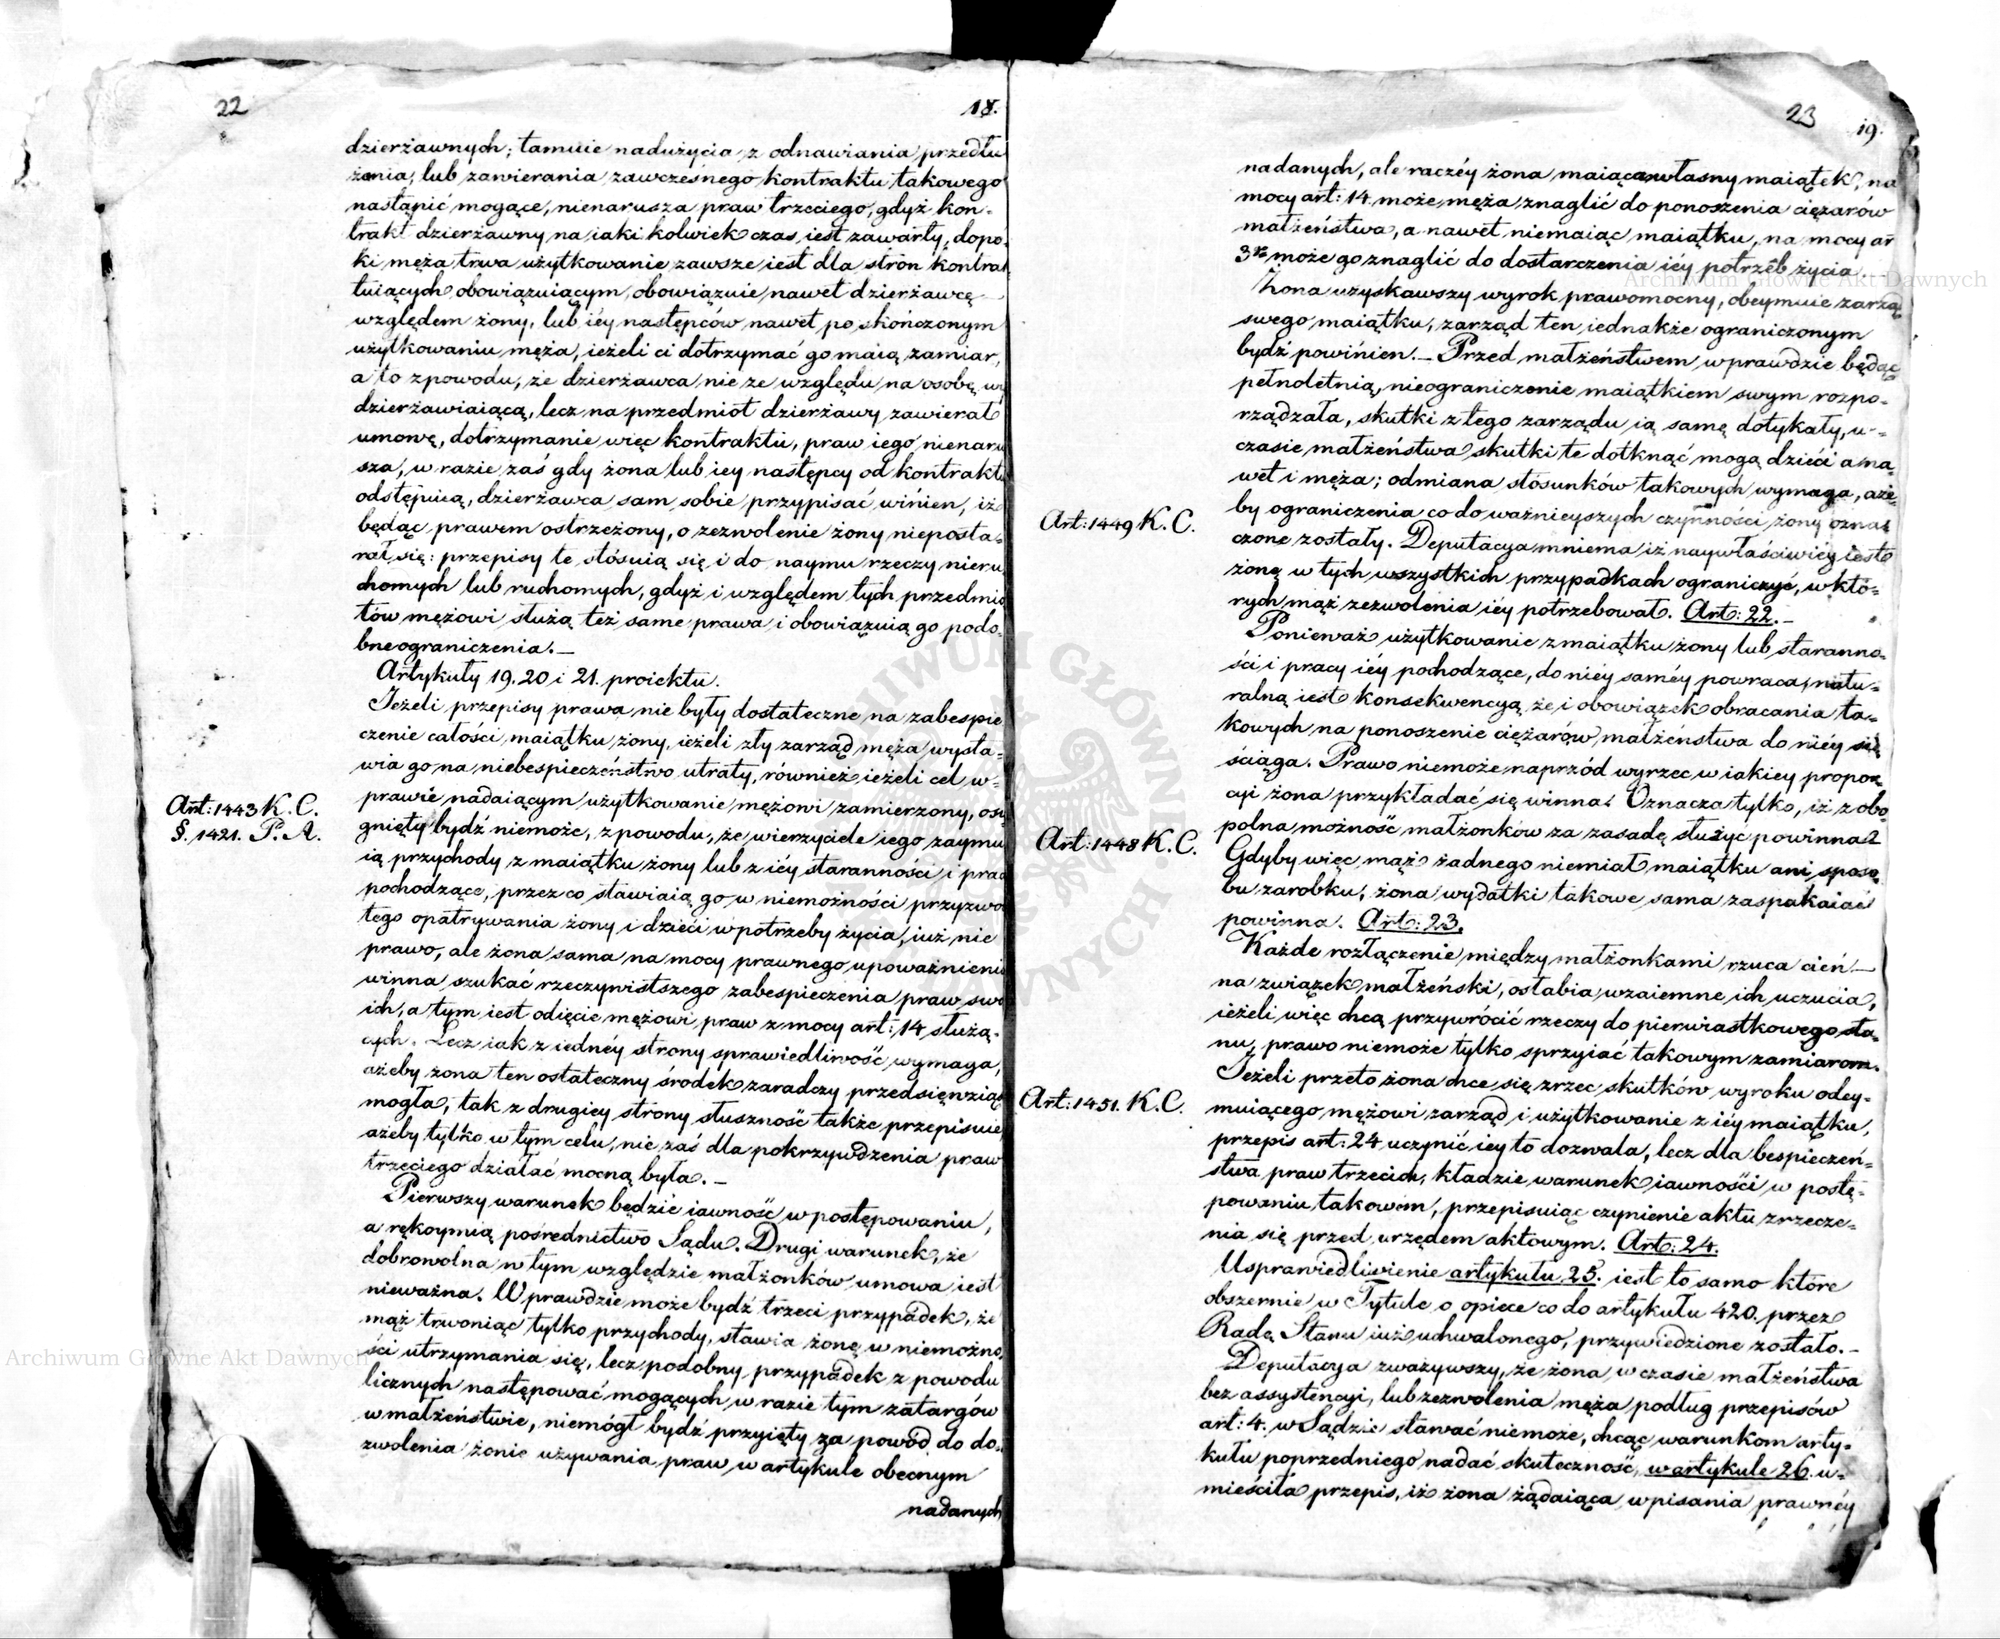 22
18.
dzierżawnych; tamuie nadużycia z odnawiania przedłu
żenia, lub zawierania zawczesnego kontraktu takowego
nastąpić mogące, nienarusza praw trzeciego, gdyż kon-
trakt dzierżawny na iaki kolwiek czas iest zawarty, dopó-
ki męża trwa użytkowanie zawsze iest dla stron kontrak
tuiących obowiązuiącym, obowiązuie nawet dzierżawcę
względem żony, lub iéy następców nawet po skończonym
użytkowaniu męża, ieżeli ci dotrzymać go maią zamiar,
a to z powodu, że dzierżawca nie ze względu na osobę wy
dzierżawiaiącą, lecz na przedmiot dzierżawy zawierał
umowę, dotrzymanie więc kontraktu, praw iego nienaru
sza, w razie zaś gdy żona lub iey następcy od kontraktu
odstępuią, dzierżawca sam sobie przypisać winien, iż
będąc prawem ostrzeżony, o zezwolenie żony nieposta-
rał się: przepisy te stósuią się i do naymu rzeczy nieru
chomych lub ruchomych, gdyż i względem tych przedmio
tów mężowi służą też same prawa i obowiązuią go podo-
bne ograniczenia.—
Artykuły 19. 20 i 21. proiektu.
Jeżeli przepisy prawa nie były dostateczne na zabespie
czenie całości maiątku żony, ieżeli zły zarząd męża wysta-
wia go na niebespieczeństwo utraty, również ieżeli cel w-
prawie nadaiącym użytkowanie mężowi zamierzony, osią
Art: 1443 K. C.
gnięty bydź niemoże, z powodu, że wierzyciele iego zaymu
§. 1421. P. A.
ią przychody z maiątku żony lub z iéy staranności i prac
pochodzące, przez co stawiaią go w niemożności przyzwo
tego opatrywania żony i dzieci w potrzeby życia, iuż nie
prawo, ale żona sama na mocy prawnego upoważnienia
winna szukać rzeczywistszego zabespieczenia praw swo
ich, a tym iest odięcie mężowi praw z mocy art: 14 służą-
cych. Lecz iak z iednéy strony sprawiedliwość wymaga,
ażeby żona ten ostateczny środek zaradczy przedsięwziąć
mogła, tak z drugiey strony słuszność także przepisuie
ażeby tylko w tym celu, nie zaś dla pokrzywdzenia praw
trzeciego działać mocną była.—
Pierwszy warunek będzie iawność w postępowaniu,
a rękoymią pośrednictwo Sądu. Drugi warunek, że
dobrowolna w tym względzie małżonków umowa iest
nieważna. Wprawdzie może bydź trzeci przypadek, że
mąż trwoniąc tylko przychody, stawia żonę w niemożno
ści utrzymania się, lecz podobny przypadek z powodu
licznych następować mogących w razie tym zatargów
w małżeństwie, niemógł bydź przyięty za powód do do-
zwolenia żonie używania praw w artykule obecnym
nadanych
23
19.
nadanych, ale raczéy żona maiąca własny maiątek, na
mocy art: 14 może męża znaglić do ponoszenia ciężarów
małżeństwa, a nawet niemaiąc maiątku, na mocy ar
może go znaglić do dostarczenia iéy potrzeb życia.
Żona uzyskawszy wyrok prawomocny, obeymuie zarząd
swego maiątku, zarząd ten iednakże ograniczonym
bydź powinien.— Przed małżeństwem wprawdzie będąc
pełnoletnią, nieograniczenie maiątkiem swym rozpo-
rządzała, skutki z tego zarządu ią samę dotykały, w-
czasie małżeństwa skutki te dotknąć mogą dzieci a na-
wet i męża; odmiana stosunków takowych wymaga, aże-
by ograniczenia co do ważnieyszych czynności żony ozna
Art: 1449 K. C.
czone zostały. Deputacya mniema iż naywłaściwiéy iest
żonę w tych wszystkich przypadkach ograniczyć, w któ-
rych mąż zezwolenia iéy potrzebował. Art: 22.—
Ponieważ użytkowanie z maiątku żony lub staranno-
ści i pracy iéy pochodzące, do niéy saméy powraca, natu-
ralną iest konsekwencyą że i obowiązek obracania ta-
kowych na ponoszenie ciężarów małżenstwa do niéy się
ściąga. Prawo niemoże naprzód wyrzec w iakiey propor
cyi żona przykładać się winna: Oznacza tylko, iż z obo
polna możność małżonków za zasadę służyc powinna.
Art: 1448 K. C.
Gdyby więc mąż żadnego niemiał maiątku ani sposo
bu zarobku, żona wydatki takowe sama zaspakaiać
powinna. Art: 23.
Każde rozłączenie między małżonkami rzuca cień—
na związek małżeński, osłabia wzaiemne ich uczucia,
ieżeli więc chcą przywrócić rzeczy do pierwiastkowego sta-
nu, prawo niemoże tylko sprzyiać takowym zamiarom.
Jeżeli przeto żona chce się zrzec skutków wyroku odey-
Art: 1451. K. C.
muiącego mężowi zarząd i użytkowanie z iéy maiątku,
przepis art: 24 uczynić iey to dozwala, lecz dla bespieczeń-
stwa praw trzecich, kładzie warunek iawności w postę-
powaniu takowem, przepisuiąc czynienie aktu zrzecze-
nia się przed urzędem aktowym. Art: 24.
Usprawiedliwienie artykułu 25. iest to samo które
obszernie w Tytule o opiece co do artykułu 420. przez
Radę Stanu iuż uchwalonego, przywiedzione zostało.—
Deputacya zważywszy, że żona w czasie małżeństwa
bez assystencyi, lub zezwolenia męża podług przepisów
art: 4. w Sądzie stawać niemoże, chcąc warunkom arty-
kułu poprzedniego nadać skuteczność, w artykule 26. u-
mieściła przepis, iż żona żądaiąca wpisania prawnéy
Archiwum Główne Akt Dawnych
Archiwum Główne Akt Dawnych
ARCHIWUM GŁÓWNE AKT DAWNYCH